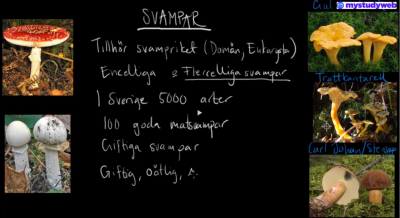 SVAMPAR
Tillhör svampriket (Domän, Eukaryota)
Encelliga & Flercelliga svampar
I Sverige 5000 arter
100 goda matsvampar
Giftiga svampar
Giftig, oätlig,
Gul
@ mystudyweb
Trattkantarell
Carl Johan/Stensopp